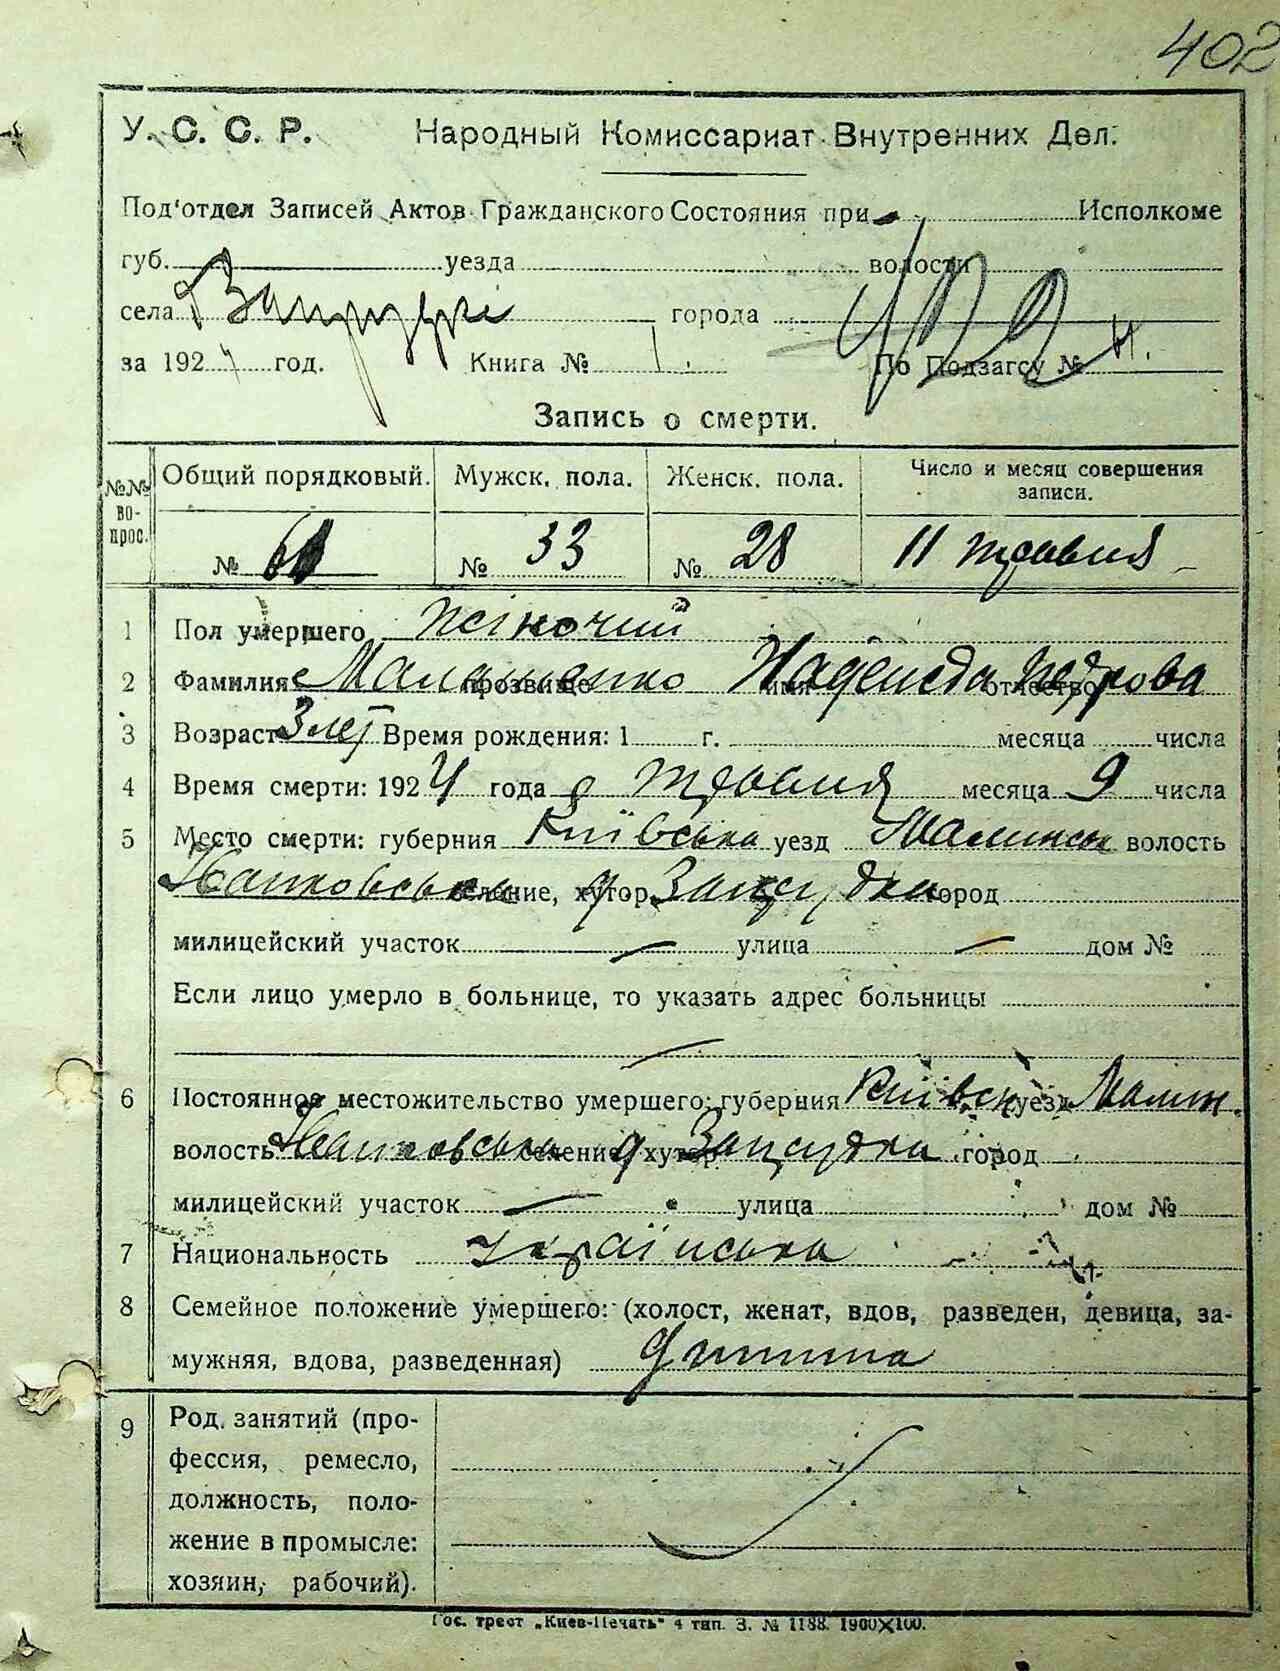 402
У. С. С. Р. Народный Комиссариат Внутренних Дел.
Под'отдел Записей Актов Гражданского Состояния при Исполкоме
губ. уезда волости
села города
за 1924 год. Книга № 1. По Подзагсу №
Запись о смерти.
№№ во- прос. Общий порядковый. Мужск. пола. Женск. пола. Число и месяц совершения записи.
№ 61 № 33 № 28 11 травня
1 Пол умершего жіночий
2 Фамилия прозвище имя Надежда отчество Петрова
3 Возраст 3 лет Время рождения: 1 г. месяца числа
4 Время смерти: 1924 года травня месяца 9 числа
5 Место смерти: губерния Київська уезд Малинськ волость
селение, хутор город
милицейский участок — улица — дом №
Если лицо умерло в больнице, то указать адрес больницы
6 Постоянное местожительство умершего: губерния Київськ уезд Малин.
волость селение, хутор город
милицейский участок — улица дом №
7 Национальность українська
8 Семейное положение умершего: (холост, женат, вдов, разведен, девица, за-
мужняя, вдова, разведенная) дитина
9 Род занятий (про-
фессия, ремесло,
должность, поло-
жение в промысле:
хозяин, рабочий).
Гос. трест „Киев-Печать" 4 тип. З. № 1188. 1900×100.